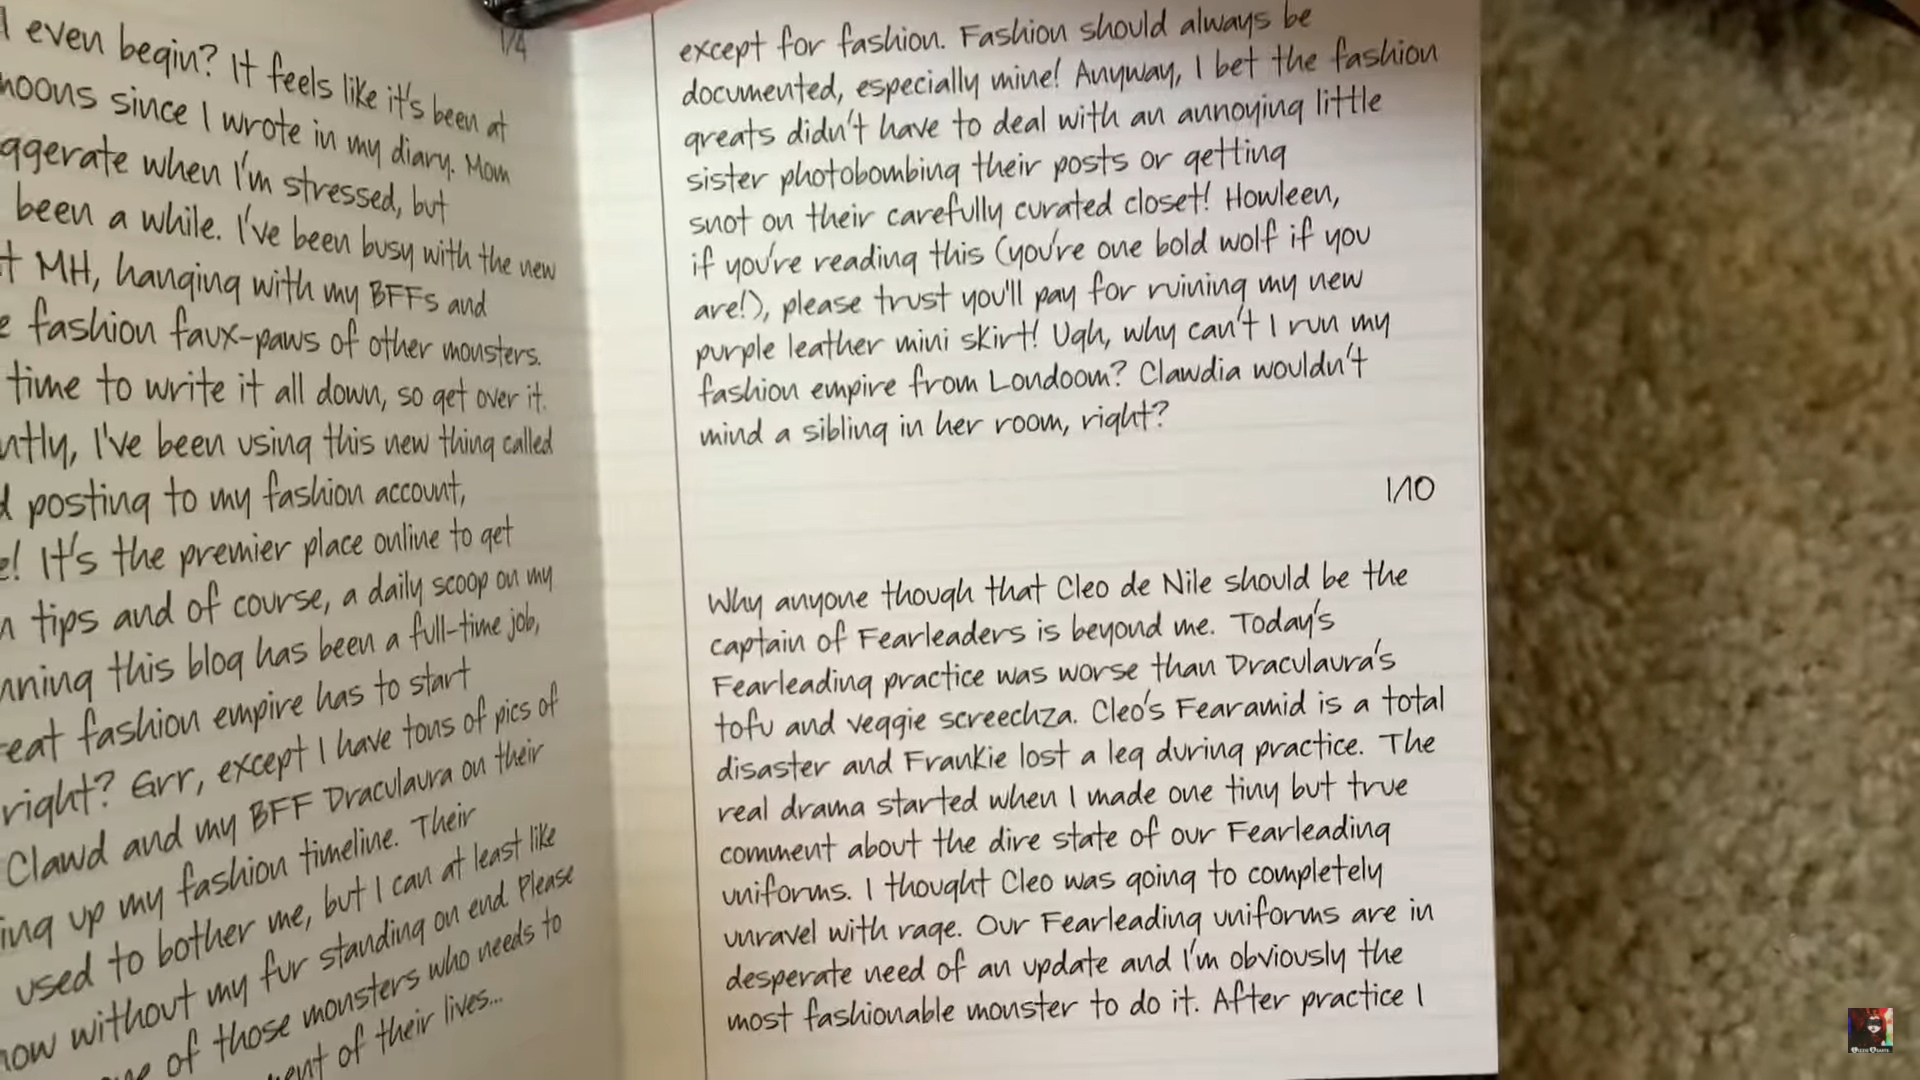 1/4
I even begin? It feels like it's been at
moons since I wrote in my diary. Mom
ggerate when I'm stressed, but
been a while. I've been busy with the new
t MH, hanging with my BFFs and
e fashion faux-paws of other monsters.
time to write it all down, so get over it.
ntly, I've been using this new thing called
d posting to my fashion account,
e! It's the premier place online to get
n tips and of course, a daily scoop on my
nning this blog has been a full-time job,
reat fashion empire has to start
right? Grr, except I have tons of pics of
Clawd and my BFF Draculaura on their
ing up my fashion timeline. Their
used to bother me, but I can at least like
now without my fur standing on end. Please
of those monsters who needs to
of their lives...
except for fashion. Fashion should always be
documented, especially mine! Anyway, I bet the fashion
greats didn't have to deal with an annoying little
sister photobombing their posts or getting
snot on their carefully curated closet! Howleen,
if you're reading this (you're one bold wolf if you
are!), please trust you'll pay for ruining my new
purple leather mini skirt! Ugh, why can't I run my
fashion empire from Londoom? Clawdia wouldn't
mind a sibling in her room, right?
1/10
Why anyone though that Cleo de Nile should be the
captain of Fearleaders is beyond me. Today's
Fearleading practice was worse than Draculaura's
tofu and veggie screechza. Cleo's Fearamid is a total
disaster and Frankie lost a leg during practice. The
real drama started when I made one tiny but true
comment about the dire state of our Fearleading
uniforms. I thought Cleo was going to completely
unravel with rage. Our Fearleading uniforms are in
desperate need of an update and I'm obviously the
most fashionable monster to do it. After practice I